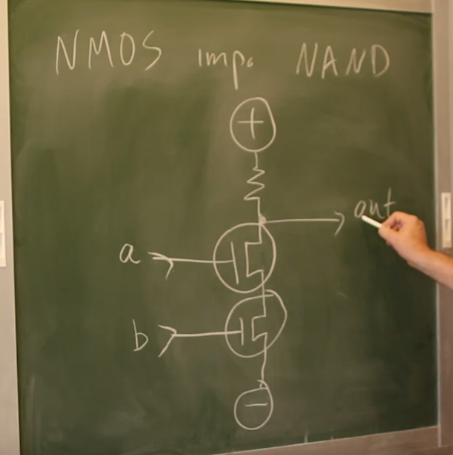 NMOS imp. NAND
+
out
a
b
−